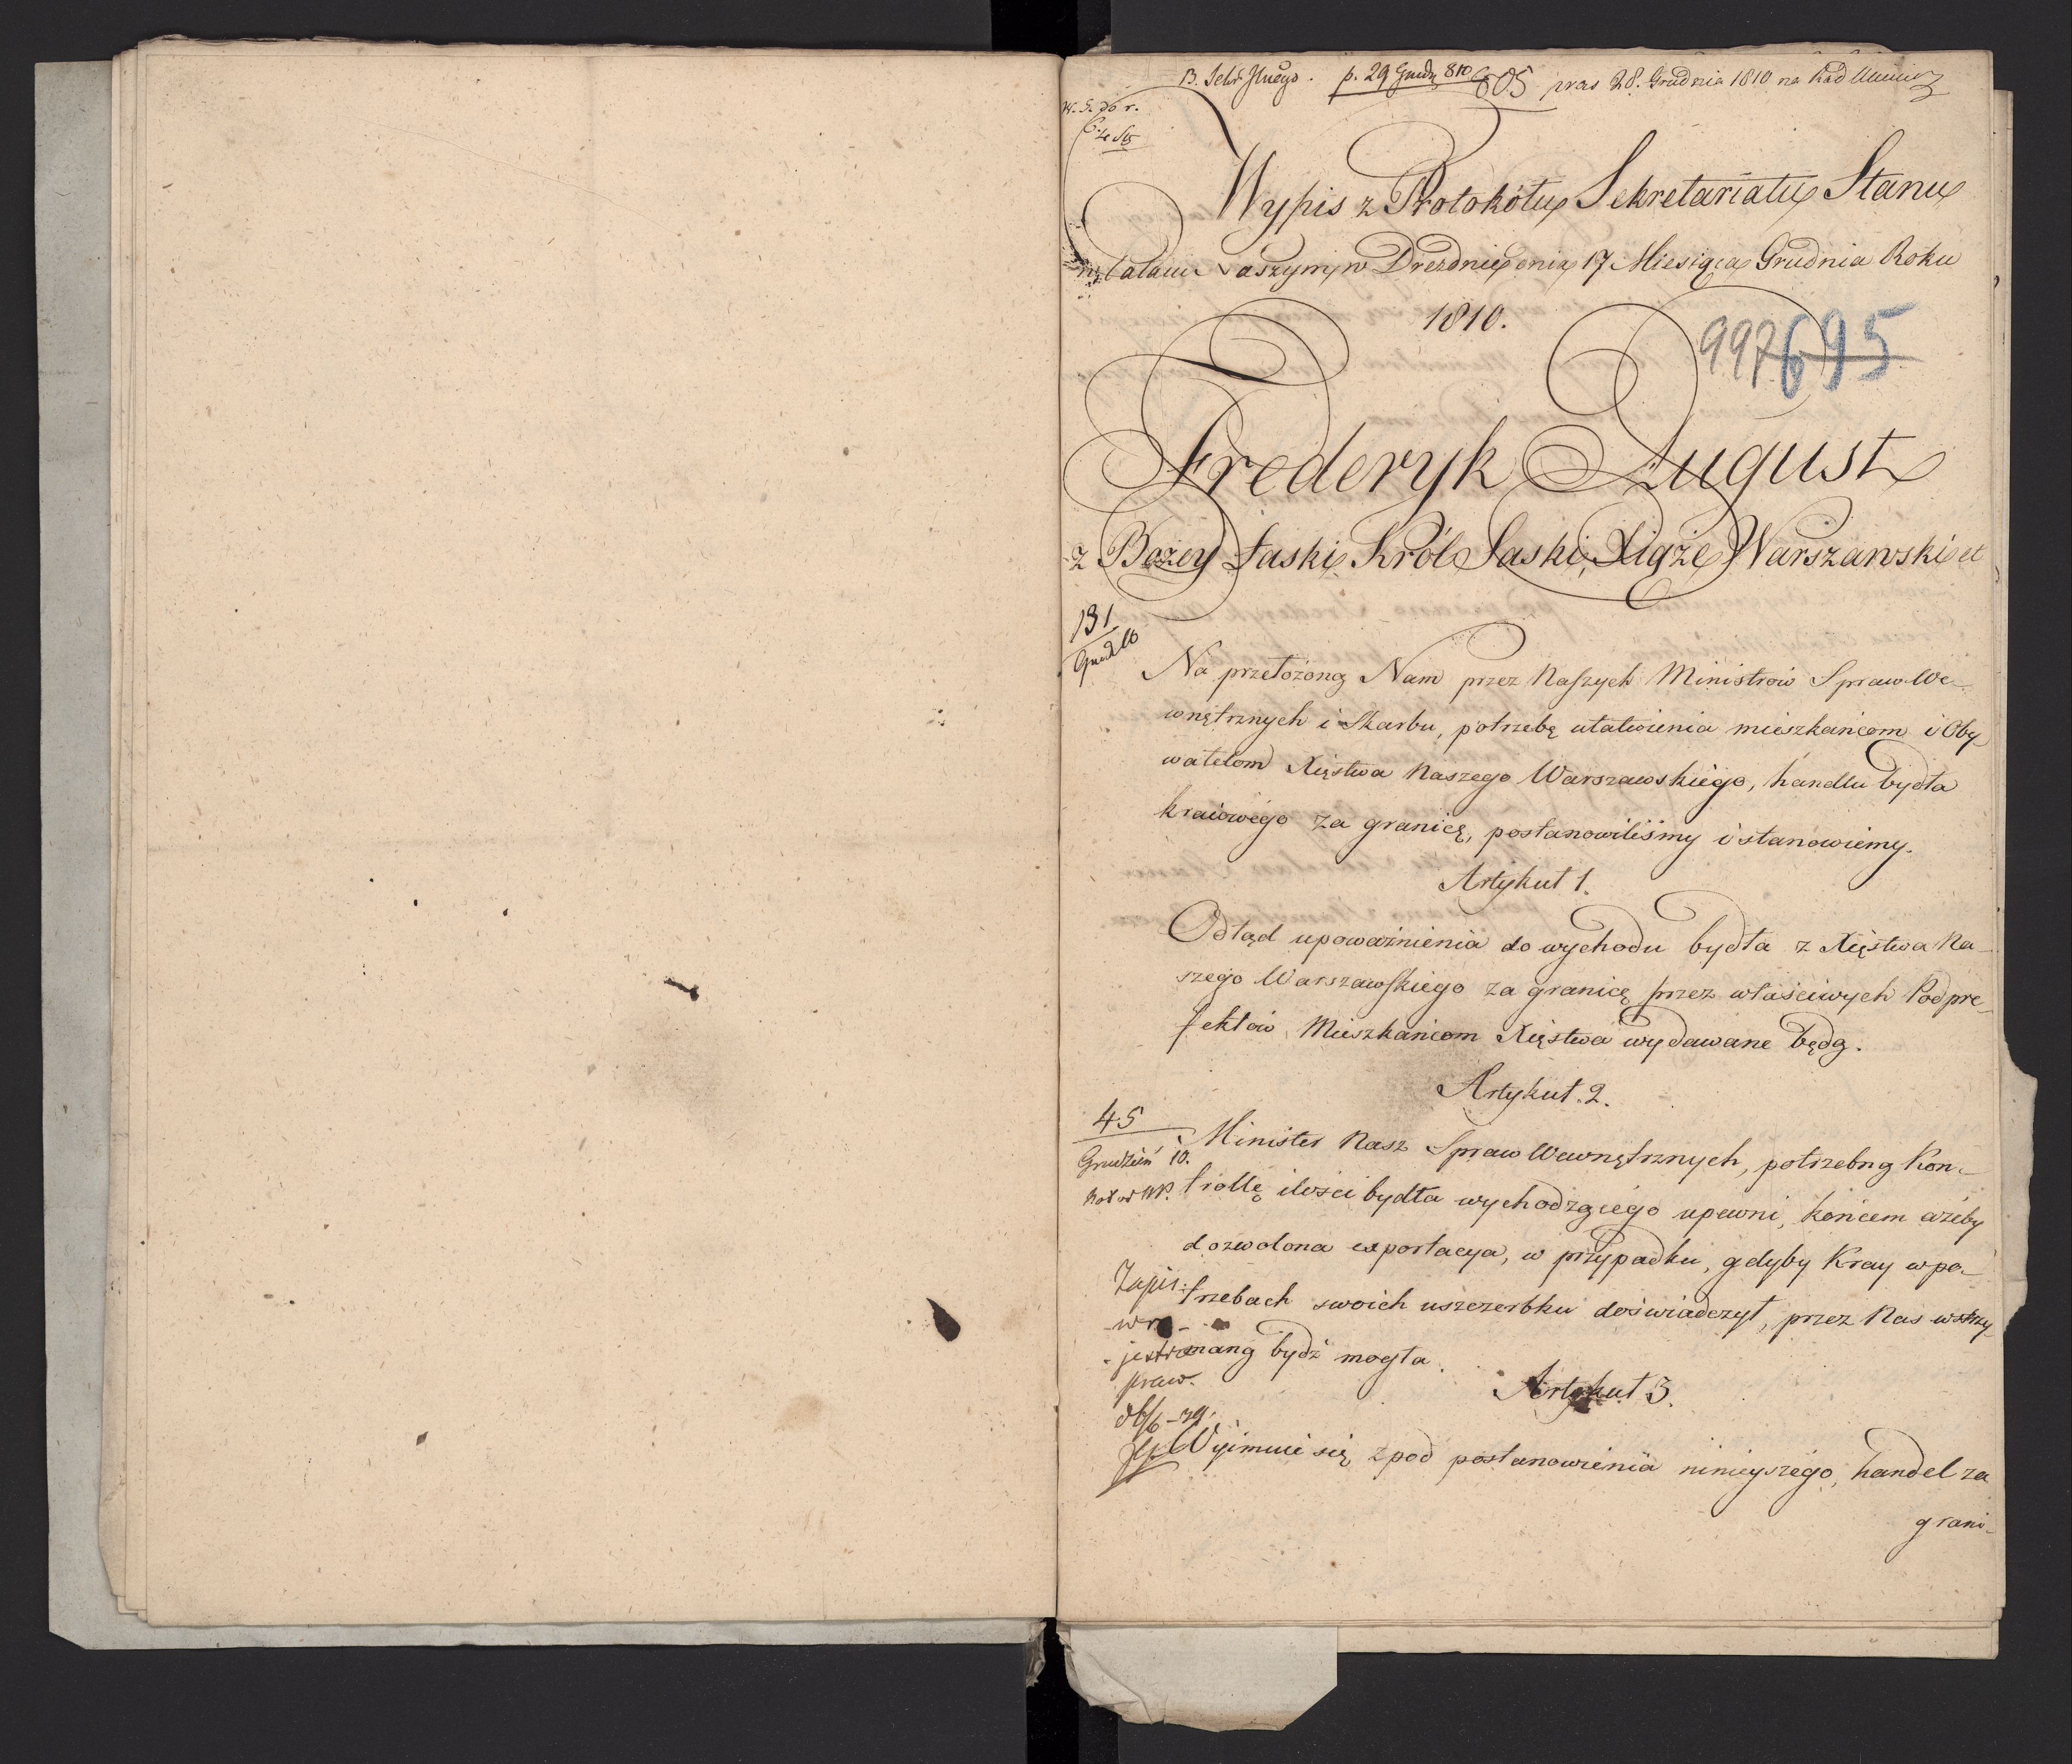 p. 29 Grudn 810 605 pras 28. Grudnia 1810 na Rad
Wypis z Protokółu Sekretariatu Stanu
w Pałacu Naszym w Dreznie dnia 17 Miesiąca Grudnia Roku
1810.
997 695
Frederyk August
z Bożey Łaski Król Saski, Xiąże Warszawski et
131
Grud 10
Na przełożoną Nam przez Naszych Ministrów Spraw We-
wnętrznych i Skarbu, potrzebę ułatwienia mieszkańcom i Oby
watelom Xięstwa Naszego Warszawskiego, handlu bydła
kraiowego za granicę, postanowiliśmy i stanowiemy.
Artykuł 1.
Odtąd upoważnienia do wychodu bydła z Xięstwa Na-
szego Warszawskiego za granicę przez właściwych Podpre-
fektów Mieszkańcom Xięstwa wydawane będą.
Artykuł. 2.
45
Grudzień 10.
Minister Nasz Spraw Wewnętrznych, potrzebną Kon-
trollę ilości bydła wychodzącego upewni, końcem ażeby
dozwolona exportacya, w przypadku, gdyby Kray w po-
trzebach swoich uszczerbku doświadczył, przez Nas wstrzy
maną bydź mogła.
Zapis:
praw.
Artykuł 3.
Wyimuie się z pod postanowienia ninieyszego, handel za
grani-